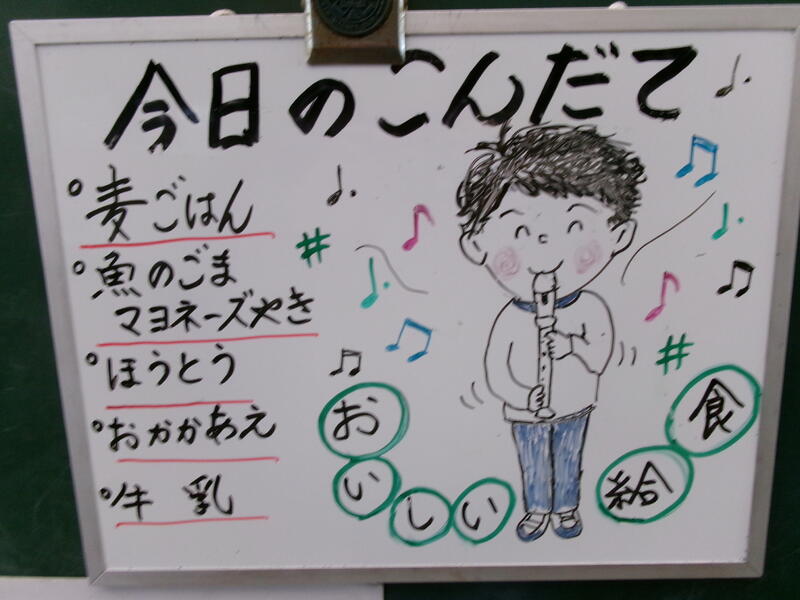 今日のこんだて
麦ごはん
魚のごま
マヨネーズやき
ほうとう
おかかあえ
牛乳
おいしい
給食